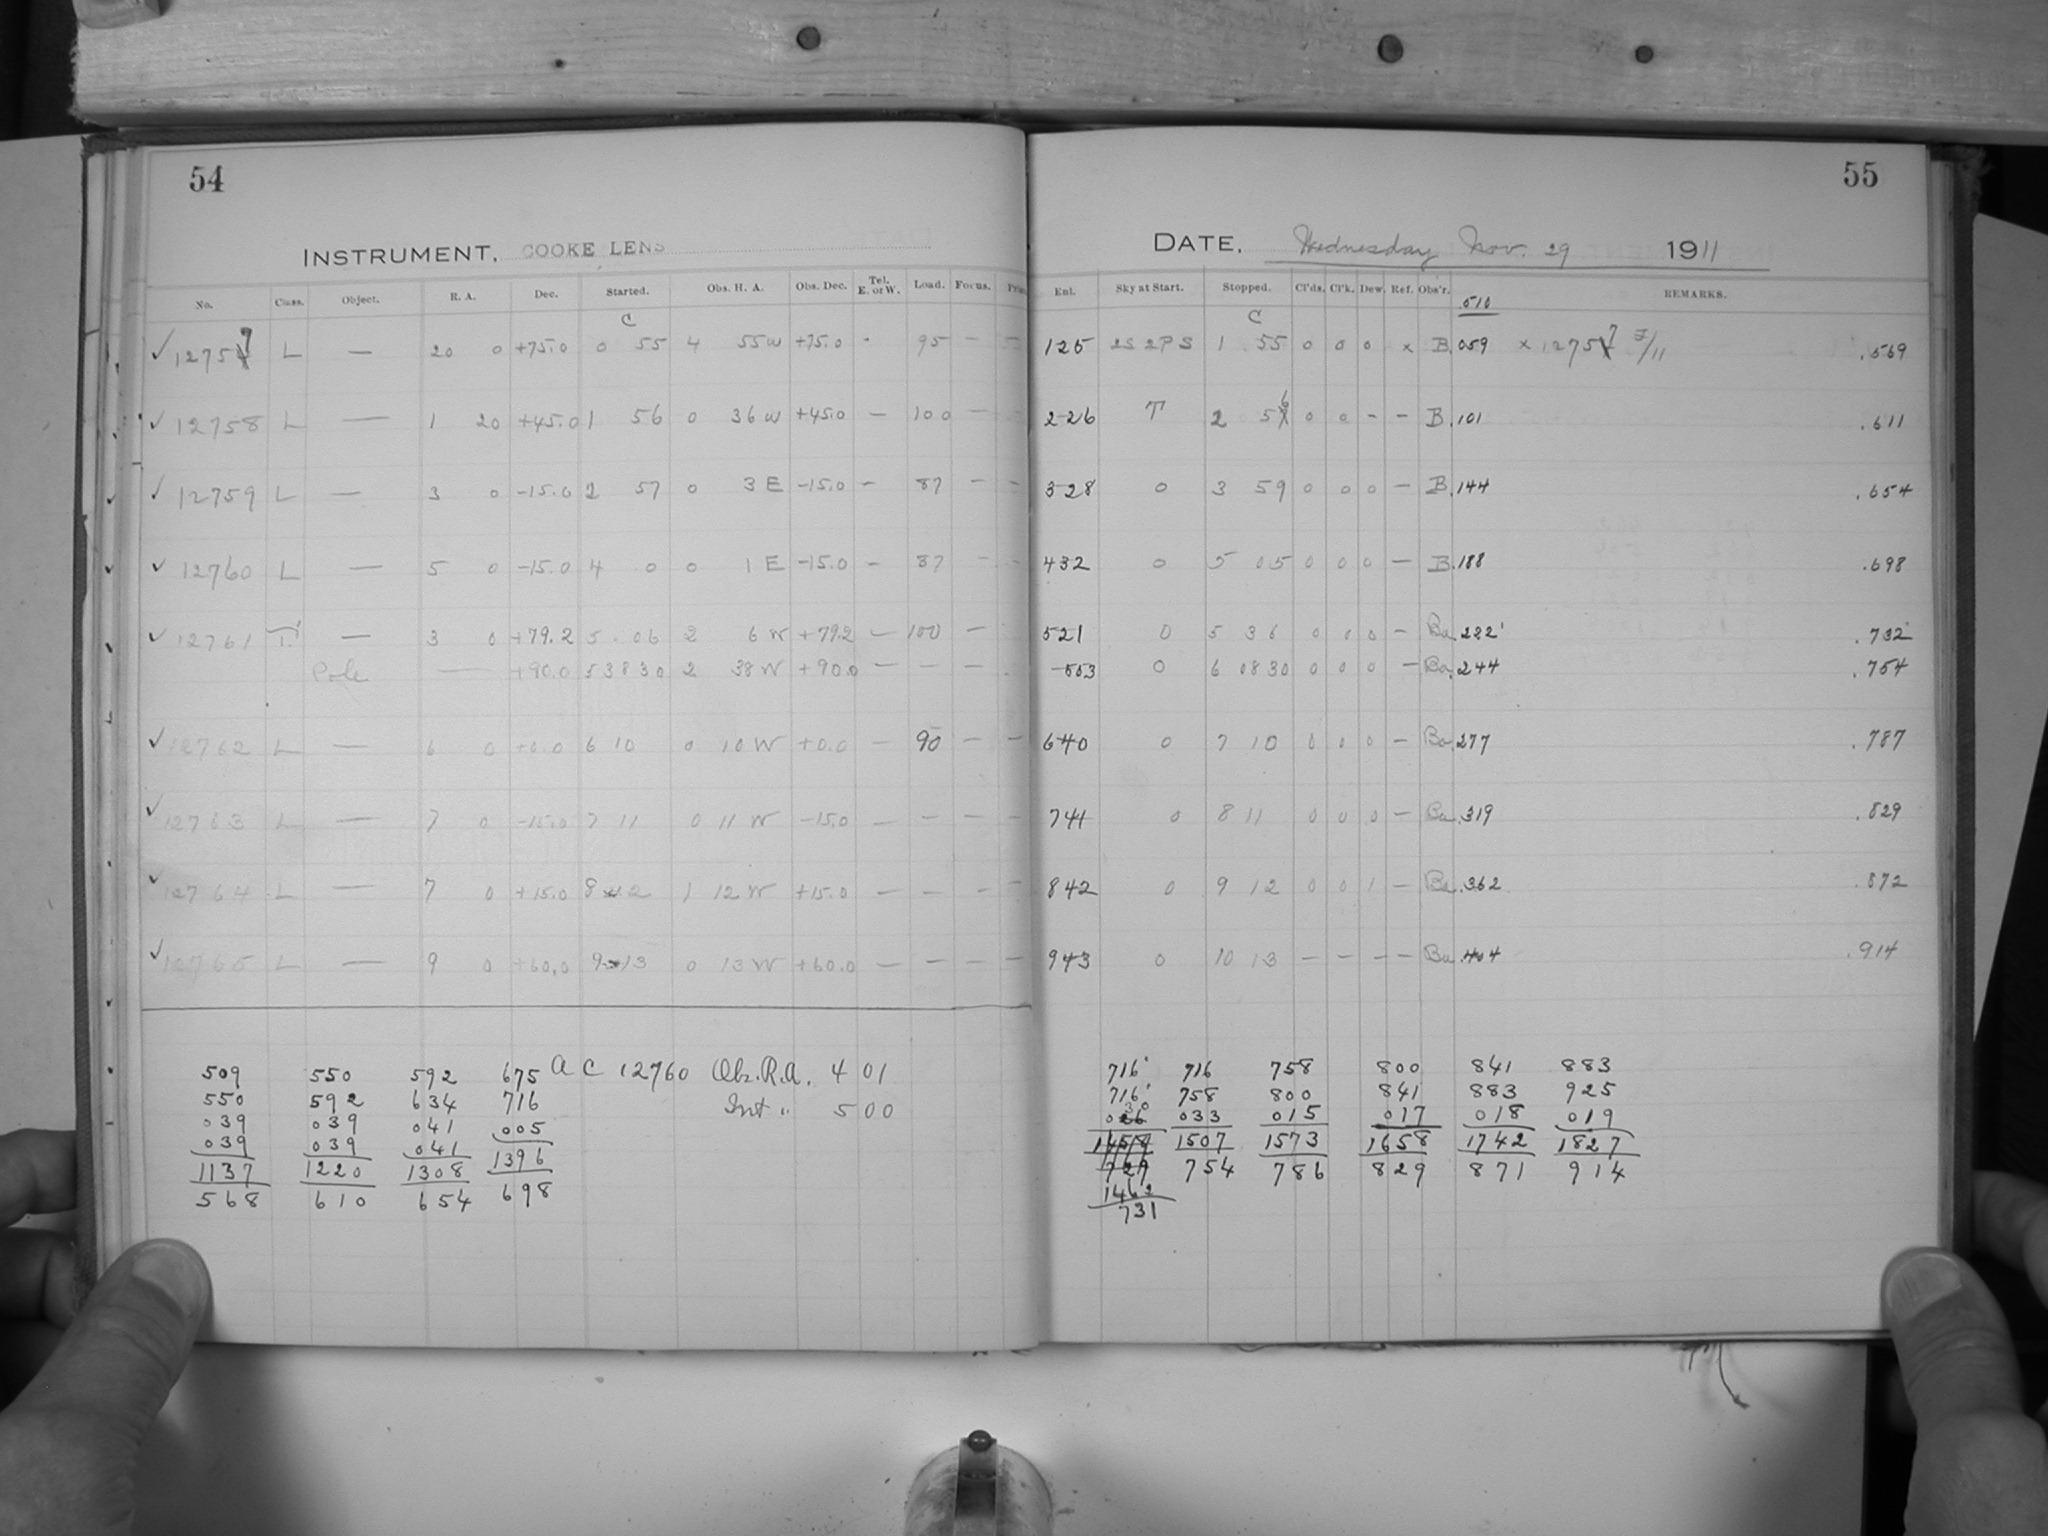 54
INSTRUMENT, COOKE LENS
No. Class. Object. R. A. Dec. Started. Obs. H. A. Obs. Dec. Tel. E. or W. Load. Focus.
C
✓ 12757 L — 20 0 +75.0 0 55 4 55 W +75.0 - 95 —
✓ 12758 L — 1 20 +45.0 1 56 0 36 W +45.0 — 100 —
✓ 12759 L — 3 0 -15.0 2 57 0 3 E -15.0 — 87 — —
✓ 12760 L — 5 0 -15.0 4 0 0 1 E -15.0 — 87 — —
✓ 12761 — 3 0 +79.2 5 06 2 6 W +79.2 — 100 — —
Pole — +90.0 5 38 30 2 38 W +90.0 — — —
✓ 12762 L — 6 0 +0.0 6 10 0 10 W +0.0 — 90 — —
✓ 12763 L — 7 0 -15.0 7 11 0 11 W -15.0 — — — —
✓ 12764 L — 7 0 +15.0 8 12 1 12 W +15.0 — — — —
✓ 12765 L — 9 0 +60.0 9 13 0 13 W +60.0 — — — —
509 550 592 675 A C 12760 Obs. R.A. 4 01
550 592 634 716 Int " 5 00
039 039 041 005
039 039 041 1396
1137 1220 1308 698
568 610 654
55
DATE, Wednesday Nov. 29 1911
Enl. Sky at Start. Stopped. Cl'ds. Cl'k. Dew. Ref. Obs'r. .510 REMARKS.
C
125 2S 2P S 1 55 0 0 0 x B .059 x 12757 .569
226 T 2 56 0 0 - - B .101 .611
328 0 3 59 0 0 0 — B .144 .654
432 0 5 05 0 0 0 — B .188 .698
521 0 5 36 0 0 0 — Ba .222 .732
553 0 6 08 30 0 0 0 — Ba .244 .754
640 0 7 10 0 0 0 — Ba .277 .787
741 0 8 11 0 0 0 — Ba .319 .829
842 0 9 12 0 0 1 — Ba .362 .872
943 0 10 13 — — — — Ba .404 .914
716 716 758 800 841 883
716 758 800 841 883 925
033 015 017 018 019
1507 1573 1658 1742 1827
729 754 786 829 871 914
1462
731